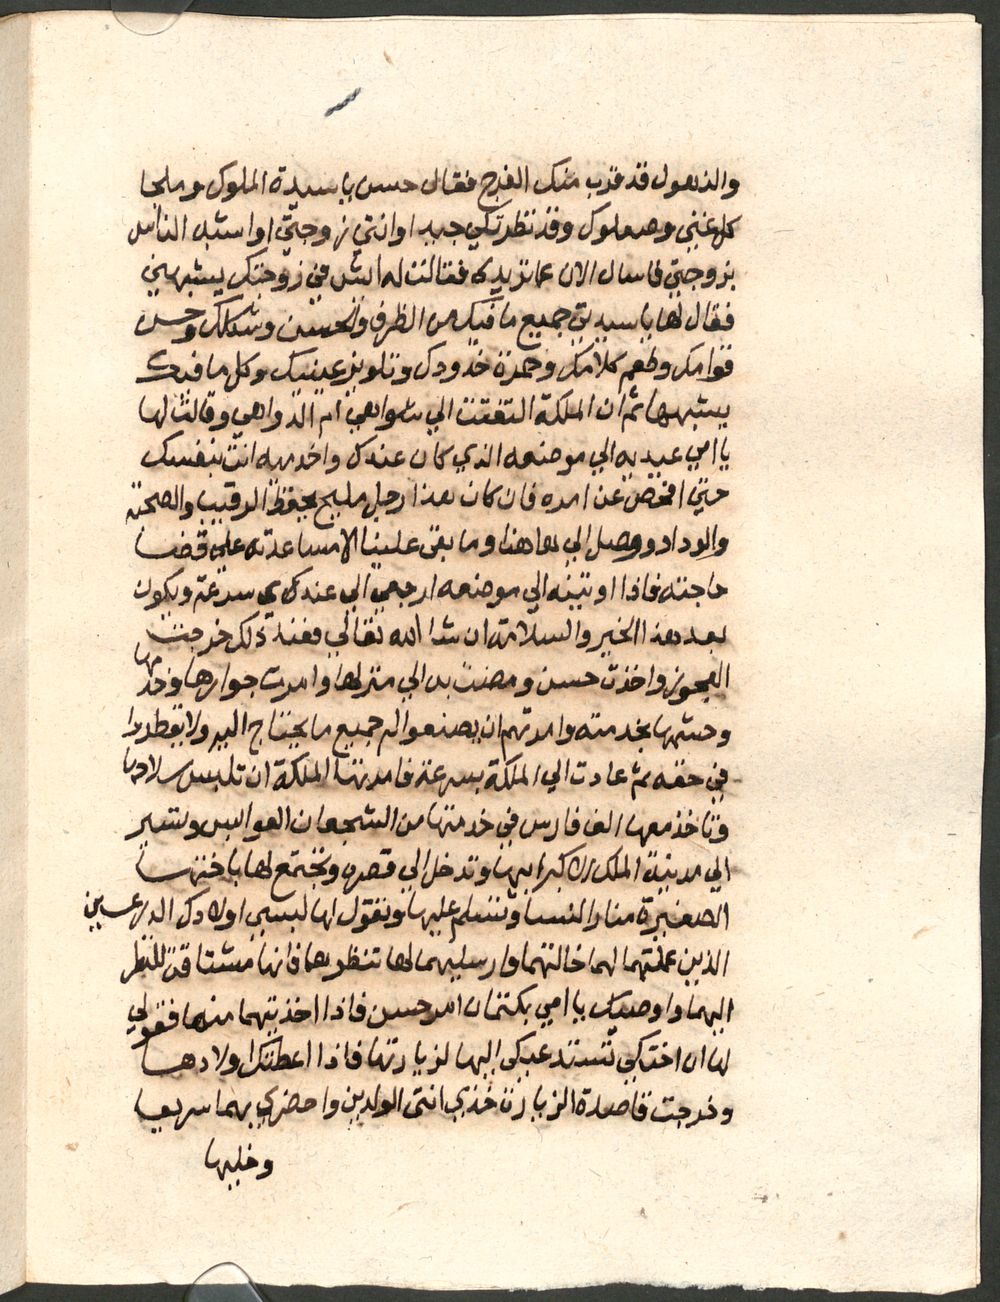 والذهول قد قرب منك الفرج فقال حسن يا سيدة الملوك وملجا
كل غني وصعلوك وقد نظرتكي جيد اوانتي زوجتي او اشبه الناس
بزوجتي فاسال الان عما تريدي فقالت له ايش في زوجتك يشبهني
فقال لها يا سيدتي جميع ما فيكي من الظرف والحسن وشكلك وحسن
قوامك وطعم كلامك وحمرة خدودك وتلويز عينيك وكل ما فيك
يشبهها ثم ان الملكة التفتت الي شواهي ام الدواهي وقالت لها
يا امي عيديه الي موضعه الذي كان عندك واخدميه انت بنفسك
حتي افحص عن امره فان كان هذا رجل مليح يحفظ الرقيب والصحبة
والوداد ووصل الي هاهنا وما بقي علينا الا مساعدته علي قضا
حاجته فاذا اوتيته الي موضعه ارجعي الي عندي سرعة ويكون
بعد هذا الخير والسلامة ان شا الله تعالي فعند ذلك خرجت
العجوز واخذت حسن ومضت به الي منزلها وامرت جوارها وخدمها
وحشمها بخدمته وامرتهم ان يصنعوا له جميع ما يحتاج اليه ولا يفرطوا
في حقه ثم عادت الي الملكة بسرعة فامرتها الملكة ان تلبس سلاحها
وتاخذ معها الف فارس في خدمتها من الشجعان العوابس وتسير
الي مدينة الملك الاكبر ابيها وتدخل الي قصره وتجتمع لها باختها
الصغيرة منار النسا وتسلم عليها وتقول لها لبسي اولادك الدرعين
الذين عملتهما لهما خالتهما وارسليهما لها تنظرهما فانها مشتاقة للنظر
اليهما واوصيك يا امي بكتمان امر حسن فاذا اخذتيهما منها فقولي
لها ان اختكي تستدعيكي اليها لزيارتها فاذا اعطتك اولادها
وخرجت قاصدة الزيارة خذي انتي الولدين واحضري بهما سريعا
وخليها